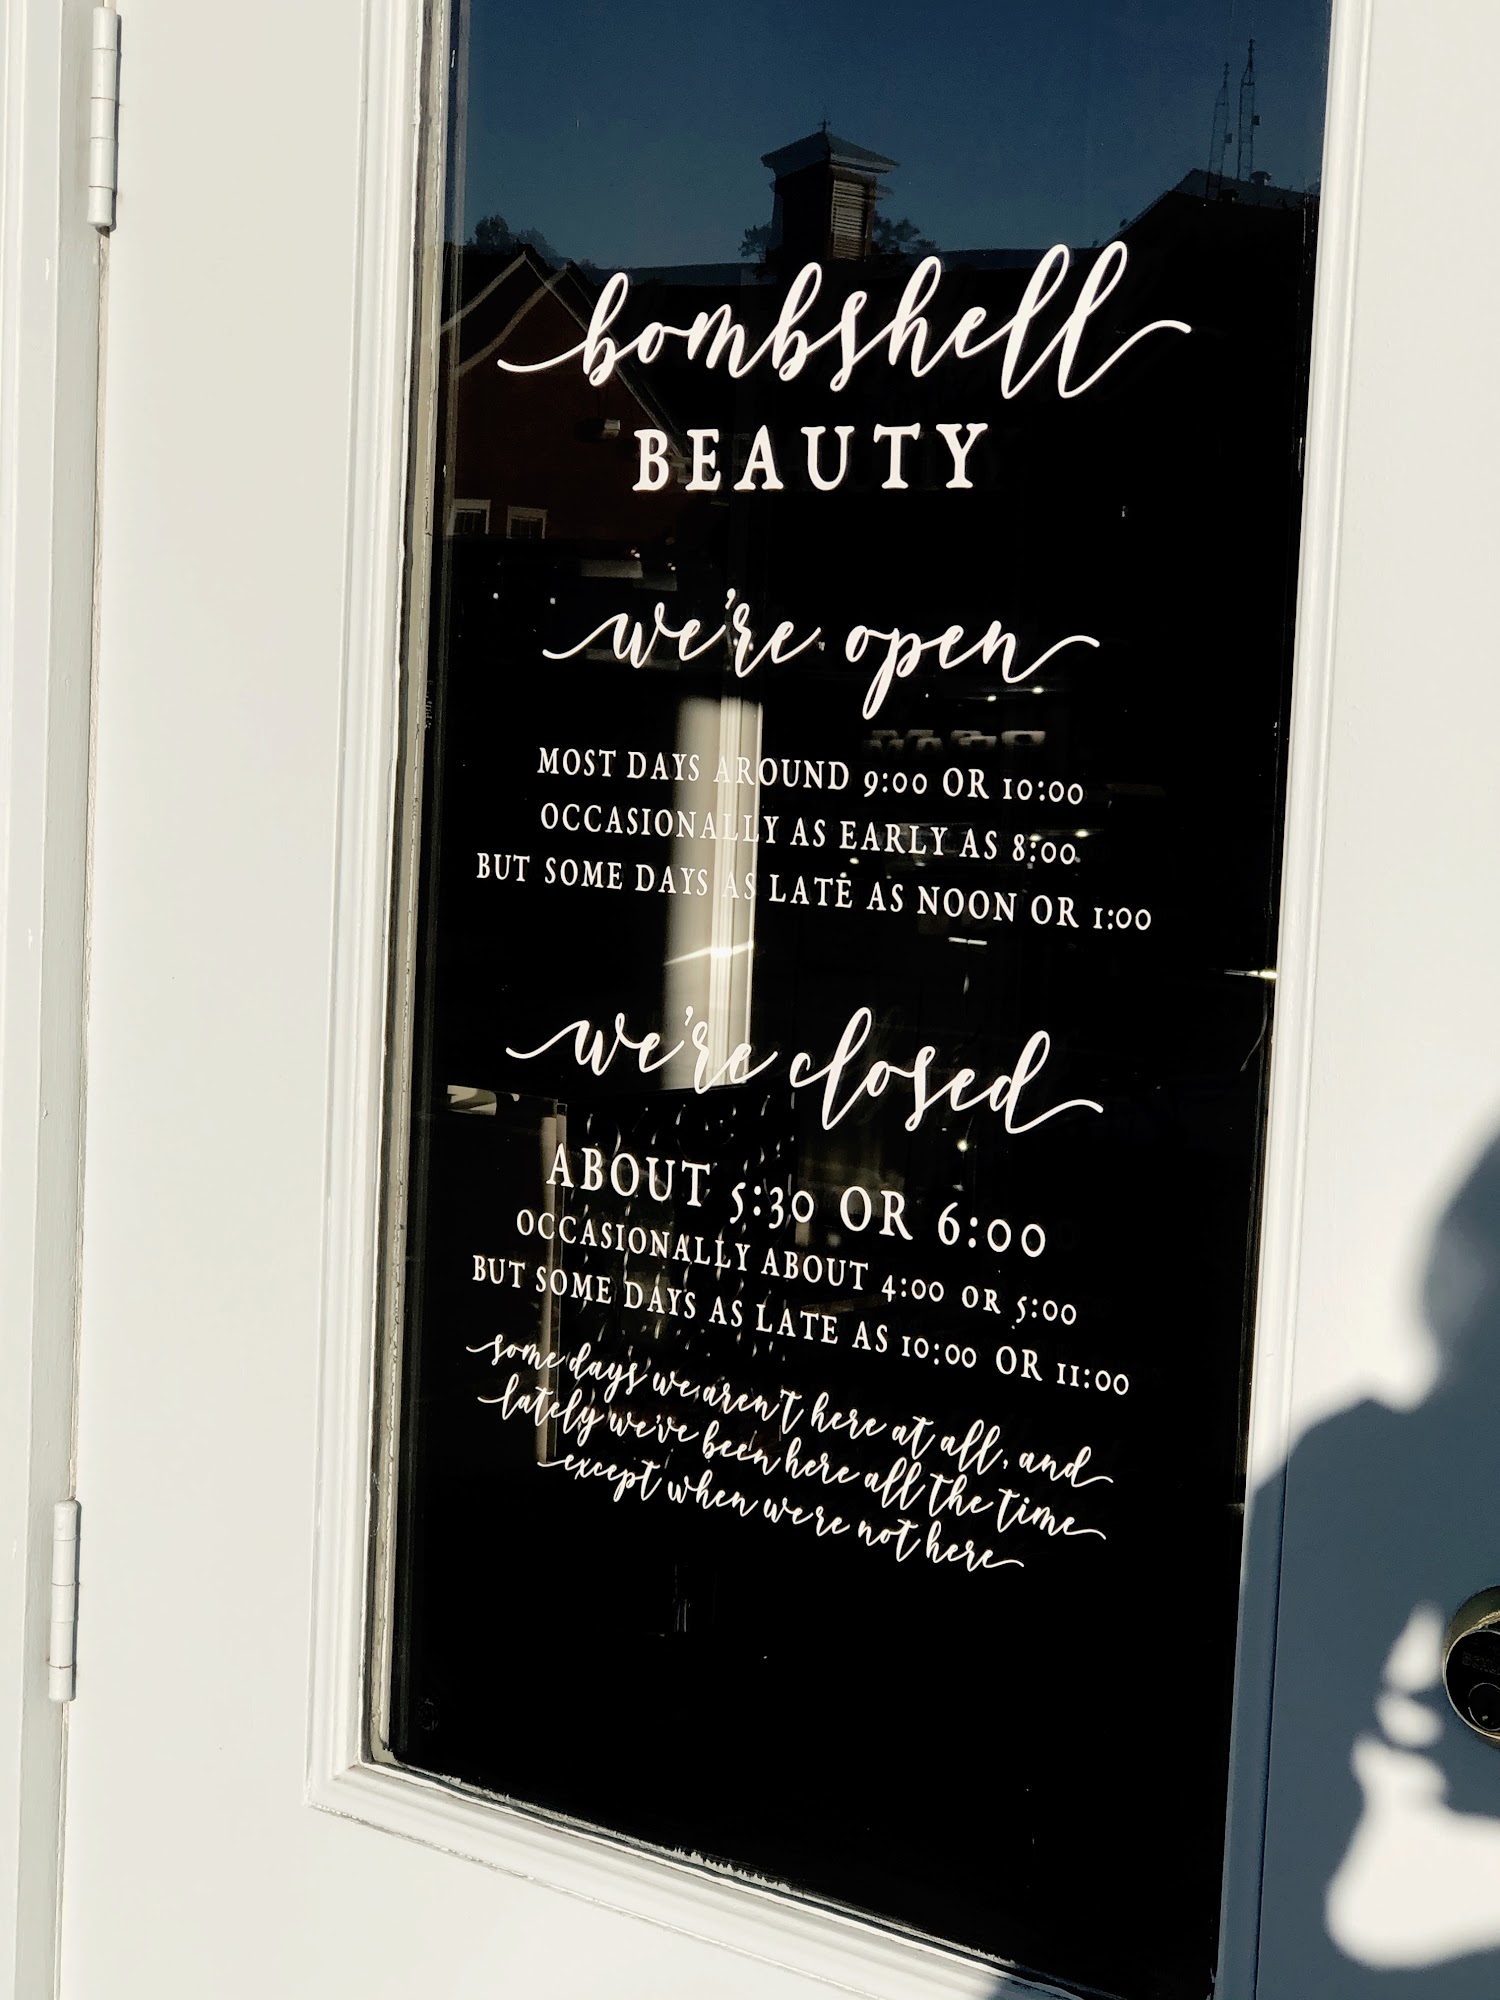 bombshell
BEAUTY
we're open
MOST DAYS AROUND 9:00 OR 10:00
OCCASIONALLY AS EARLY AS 8:00
BUT SOME DAYS AS LATE AS NOON OR 1:00
we're closed
ABOUT 5:30 OR 6:00
OCCASIONALLY ABOUT 4:00 OR 5:00
BUT SOME DAYS AS LATE AS 10:00 OR 11:00
some days we aren't here at all, and
lately we've been here all the time
except when we're not here